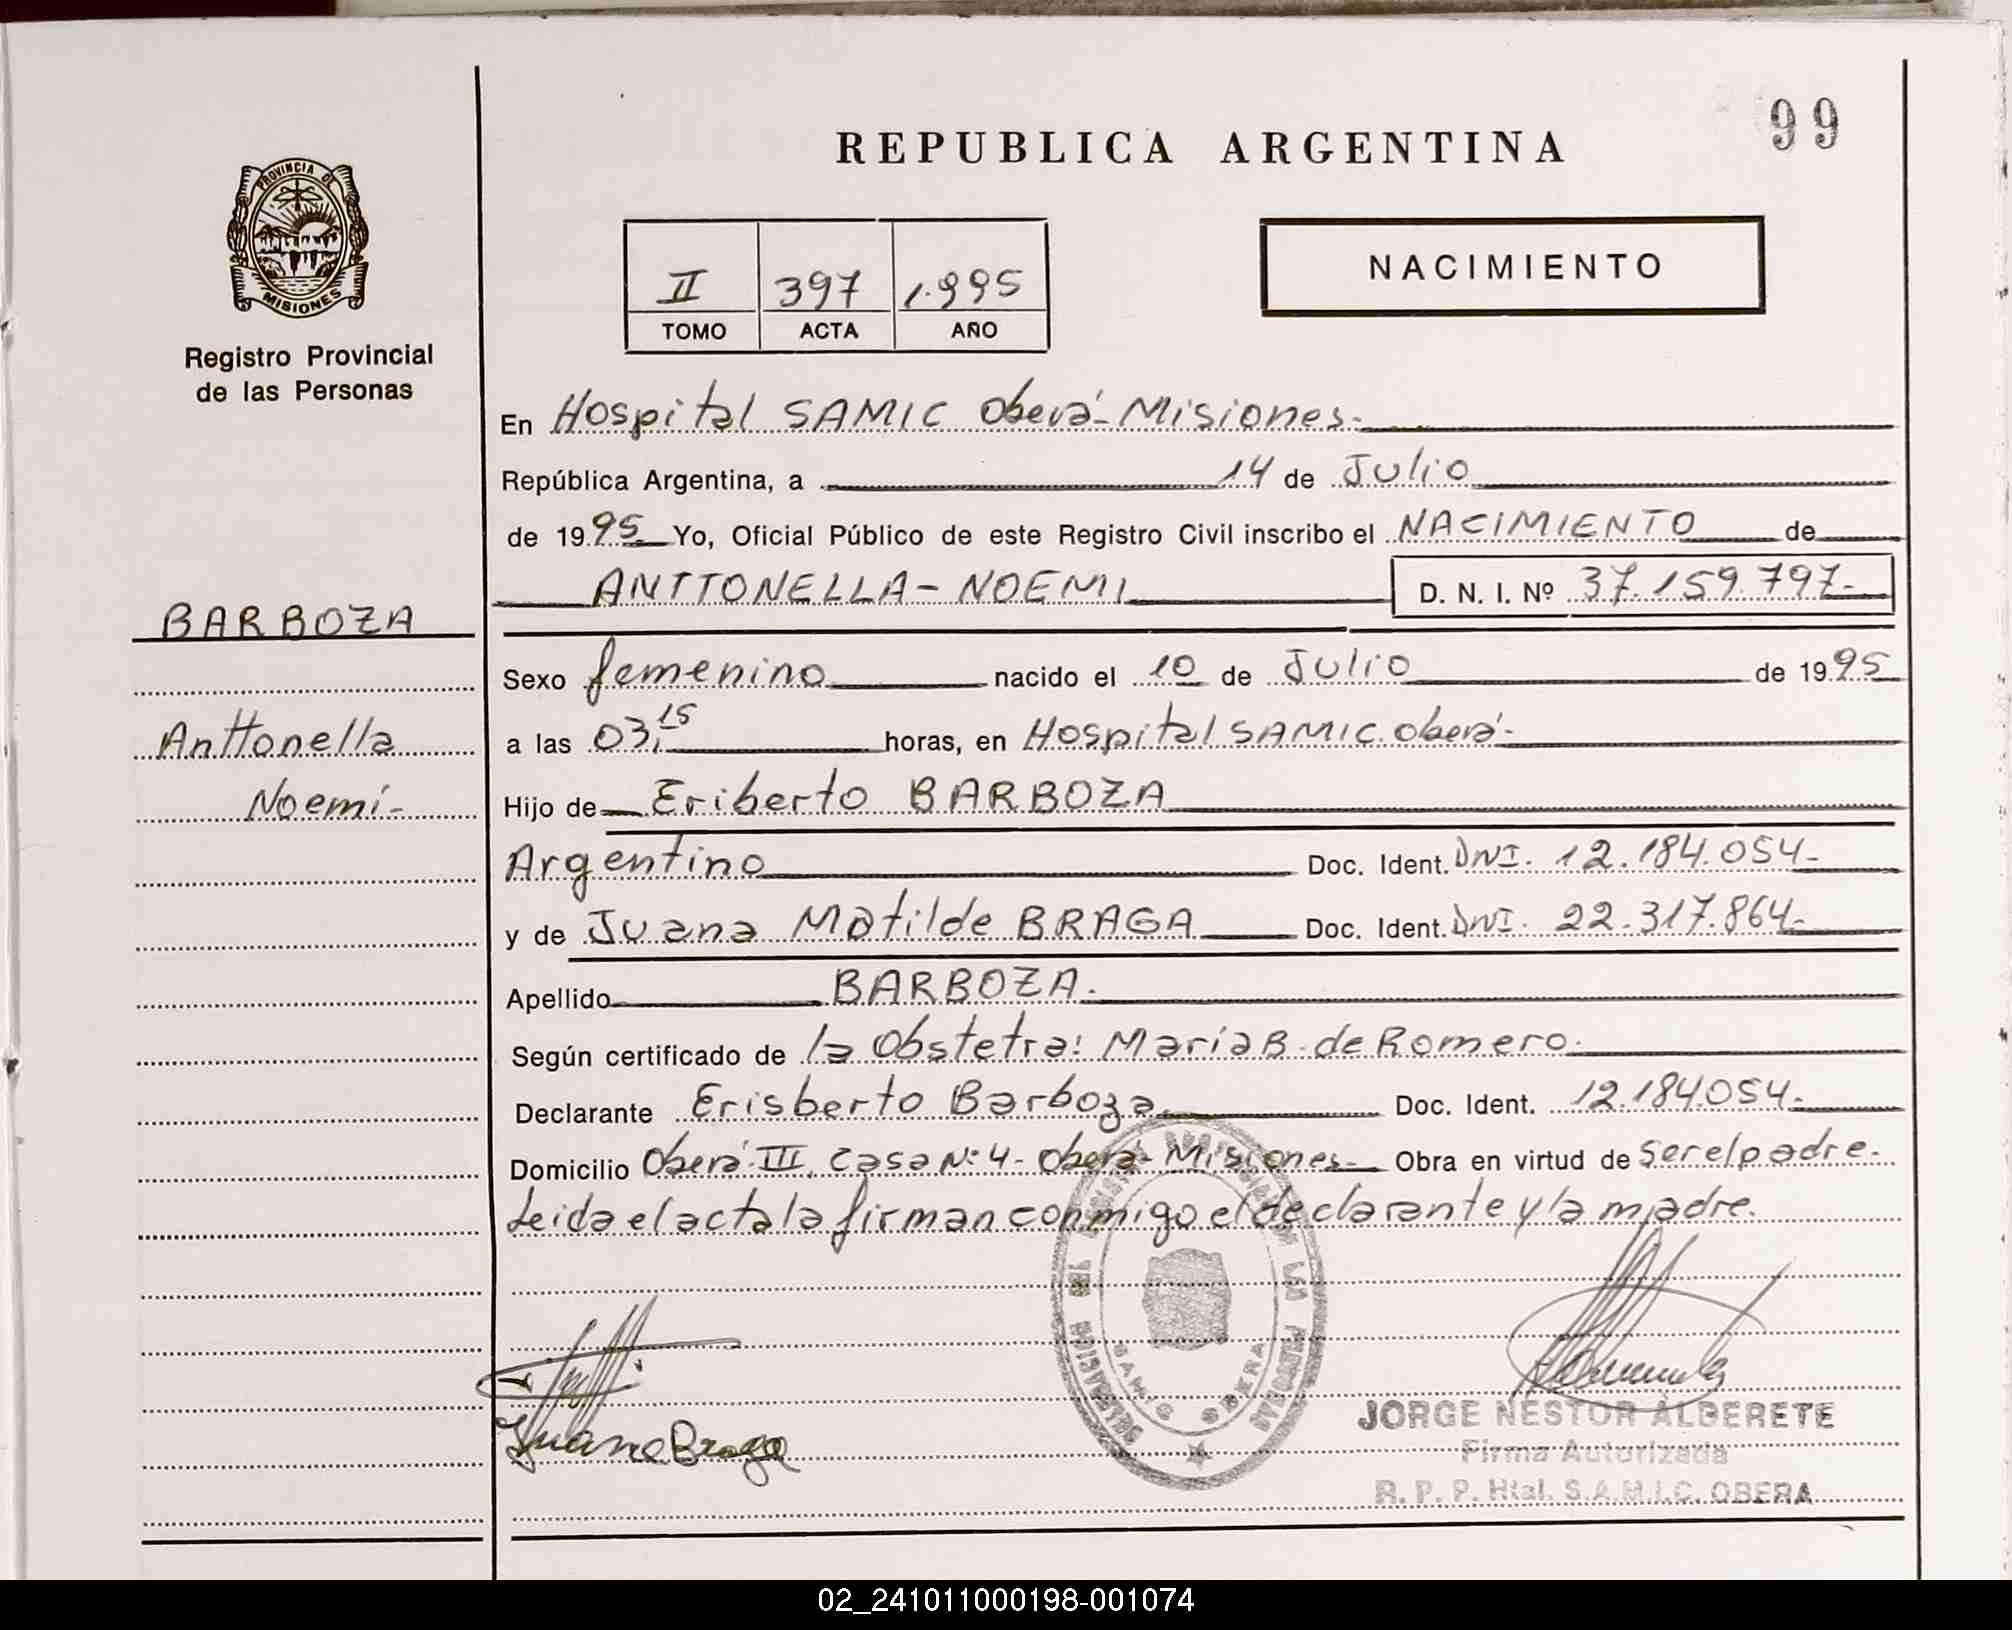 99
REPUBLICA ARGENTINA
PROVINCIA DE
MISIONES
Registro Provincial
de las Personas
II 397 1.995
TOMO ACTA AÑO
NACIMIENTO
En Hospital SAMIC Oberá-Misiones.
República Argentina, a 14 de Julio
de 1995 Yo, Oficial Público de este Registro Civil inscribo el NACIMIENTO de
ANTTONELLA-NOEMI D. N. I. Nº 37.159.797-
BARBOZA
Anttonella
Noemí-
Sexo femenino nacido el 10 de Julio de 1995
a las 03,15 horas, en Hospital SAMIC. oberá-
Hijo de Eriberto BARBOZA
Argentino Doc. Ident. DNI. 12.184.054-
y de Juana Matilde BRAGA Doc. Ident. DNI. 22.317.864-
Apellido BARBOZA.
Según certificado de la Obstetra: María B. de Romero.
Declarante Erisberto Barboza Doc. Ident. 12.184.054-
Domicilio Oberá III, Casa Nº 4- Oberá- Misiones- Obra en virtud de ser el padre-
Leida el acta la firman conmigo el declarante y la madre.
Juana Braga
JORGE NESTOR ALDERETE
Firma Autorizada
R. P. P. Htal. S.A.M.I.C. OBERA
02_241011000198-001074